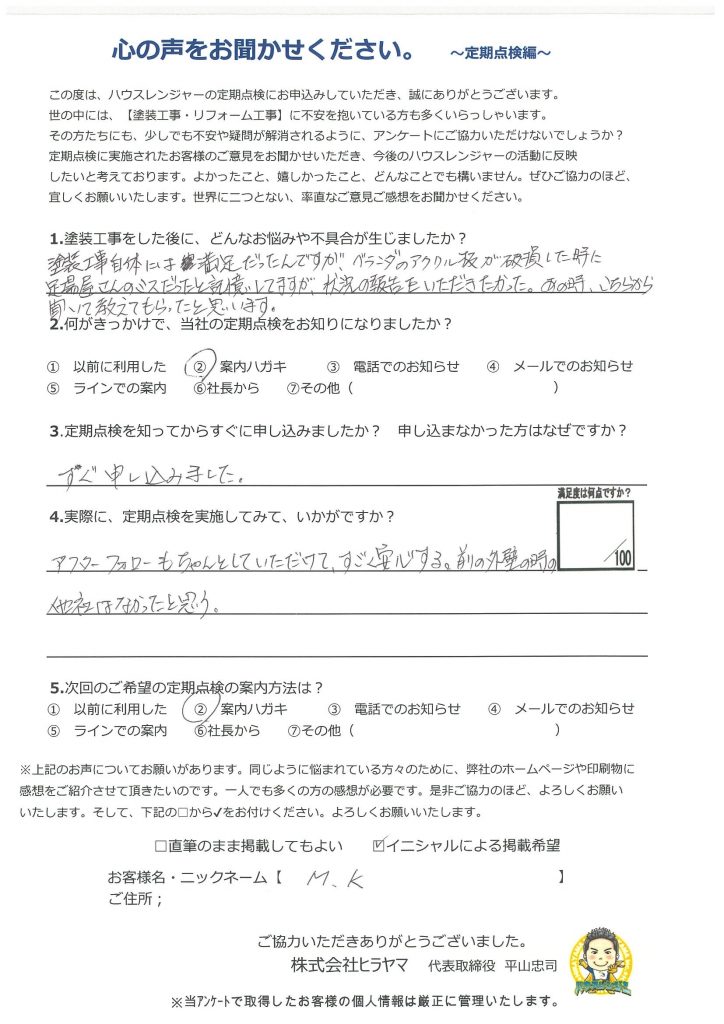 心の声をお聞かせください。 ～定期点検編～
この度は、ハウスレンジャーの定期点検にお申込みしていただき、誠にありがとうございます。
世の中には、【塗装工事・リフォーム工事】に不安を抱いている方も多くいらっしゃいます。
その方たちにも、少しでも不安や疑問が解消されるように、アンケートにご協力いただけないでしょうか？
定期点検に実施されたお客様のご意見をお聞かせいただき、今後のハウスレンジャーの活動に反映
したいと考えております。よかったこと、嬉しかったこと、どんなことでも構いません。ぜひご協力のほど、
宜しくお願いいたします。世界に二つとない、率直なご意見ご感想をお聞かせください。
1.塗装工事をした後に、どんなお悩みや不具合が生じましたか？
塗装工事自体には満足だったんですが、ベランダのアクリル板が破損した時に
足場屋さんのミスだったと記憶してますが、状況の報告をいただきたかった。あの時、こちらから
聞いて教えてもらったと思います。
2.何がきっかけで、当社の定期点検をお知りになりましたか？
① 以前に利用した ② 案内ハガキ ③ 電話でのお知らせ ④ メールでのお知らせ
⑤ ラインでの案内 ⑥社長から ⑦その他（ ）
3.定期点検を知ってからすぐに申し込みましたか？ 申し込まなかった方はなぜですか？
すぐ申し込みました。
満足度は何点ですか？
4.実際に、定期点検を実施してみて、いかがですか？
／100
アフターフォローもちゃんとしていただけて、すごく安心する。前の外壁の時の
他社はなかったと思う。
5.次回のご希望の定期点検の案内方法は？
① 以前に利用した ② 案内ハガキ ③ 電話でのお知らせ ④ メールでのお知らせ
⑤ ラインでの案内 ⑥社長から ⑦その他（ ）
※上記のお声についてお願いがあります。同じように悩まれている方々のために、弊社のホームページや印刷物に
感想をご紹介させて頂きたいのです。一人でも多くの方の感想が必要です。是非ご協力のほど、よろしくお願い
いたします。そして、下記の□から✓をお付けください。よろしくお願いいたします。
□直筆のまま掲載してもよい ☑イニシャルによる掲載希望
お客様名・ニックネーム【 M.K 】
ご住所；
ご協力いただきありがとうございました。
株式会社ヒラヤマ 代表取締役 平山忠司
ハウスレンジャー
※当アンケートで取得したお客様の個人情報は厳正に管理いたします。